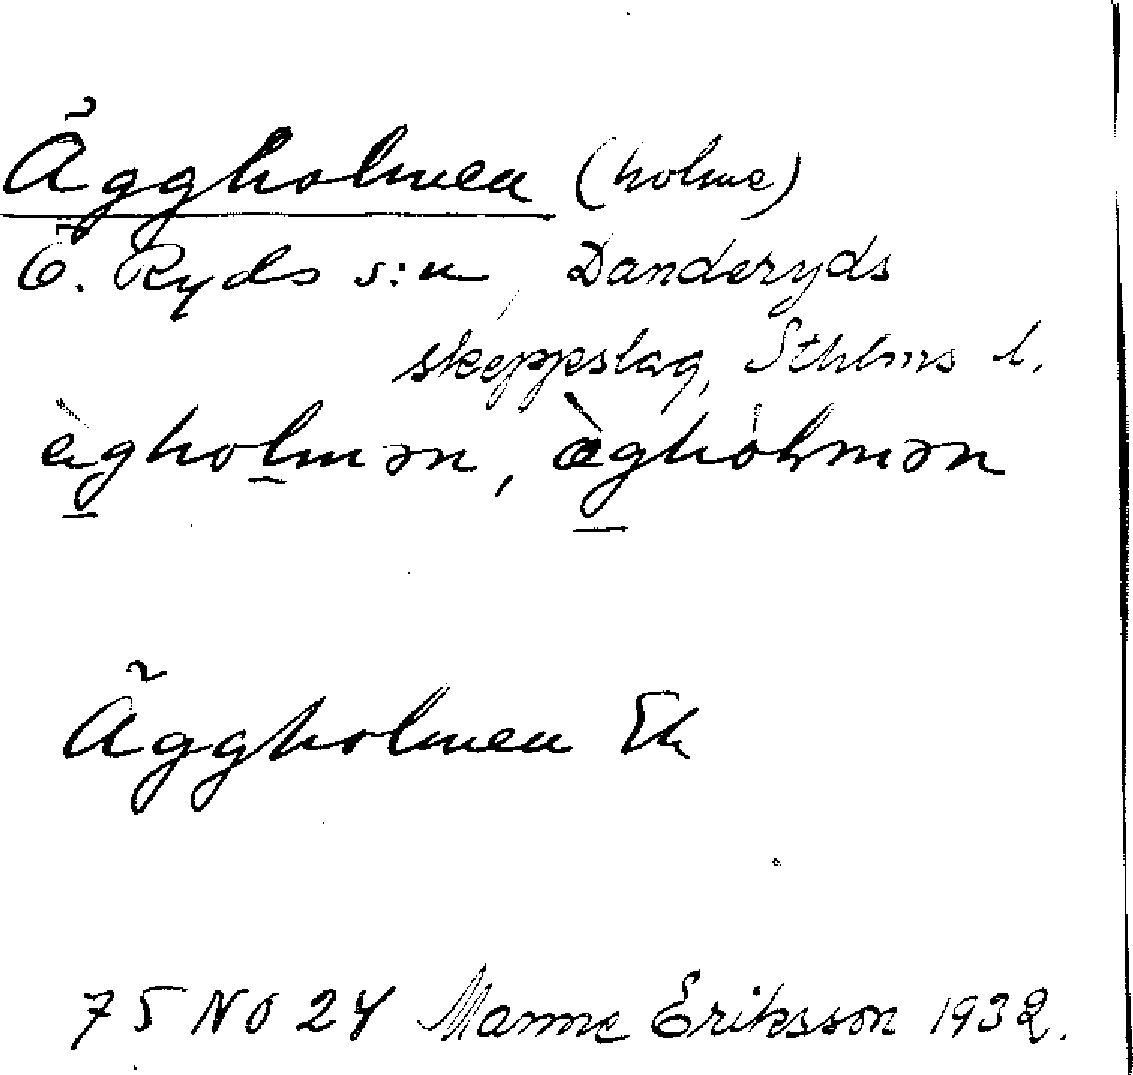 Äggholmen (holme)
Ö. Ryds s:n, Danderyds
skeppslag, Sthlms l.
ägholmən, ägholmən
Äggholmen Ek
75 NO 24 Manne Eriksson 1932.